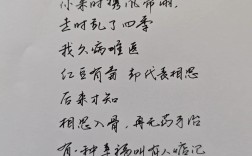 你来时携风带雨
走时乱了四季
我久病难医
红豆有毒 却代表相思
后来才知
相思入骨，再无药可治
有一种幸福叫有人惦记